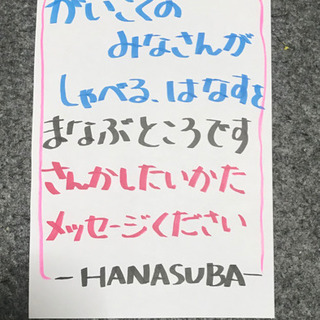 がいこくの
みなさんが
しゃべる、はなすを
まなぶところです
さんかしたいかた
メッセージください
-HANASUBA-